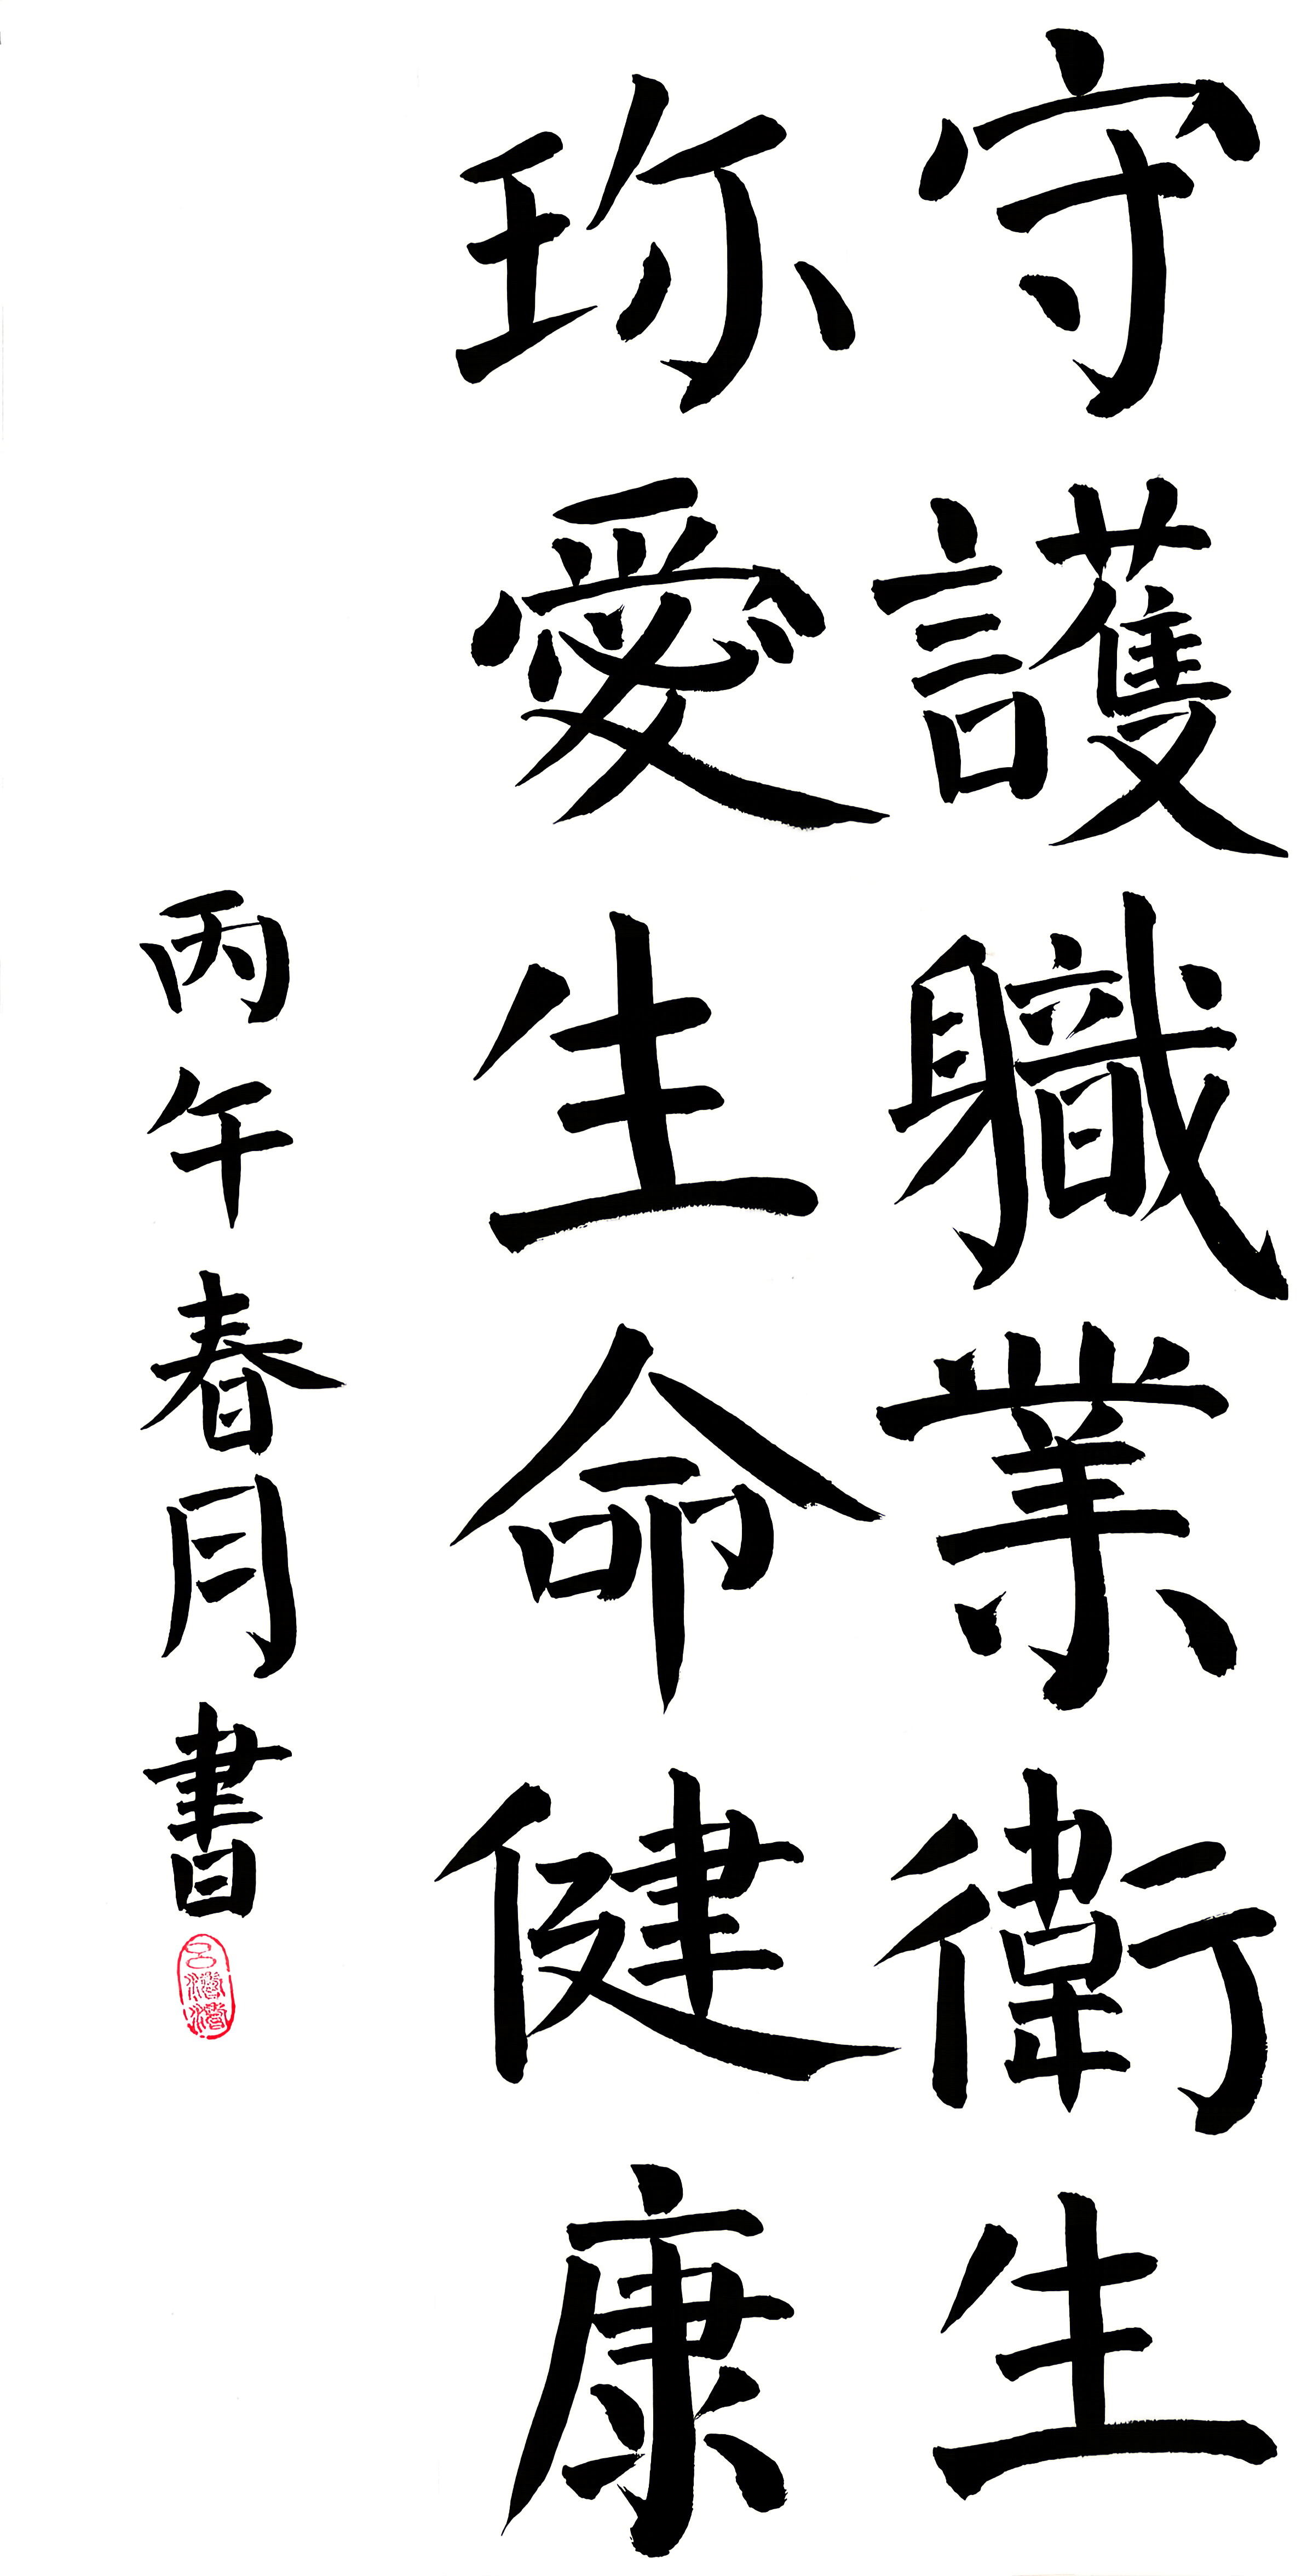 守護軄業衛生
珎愛生命健康
丙午春月書